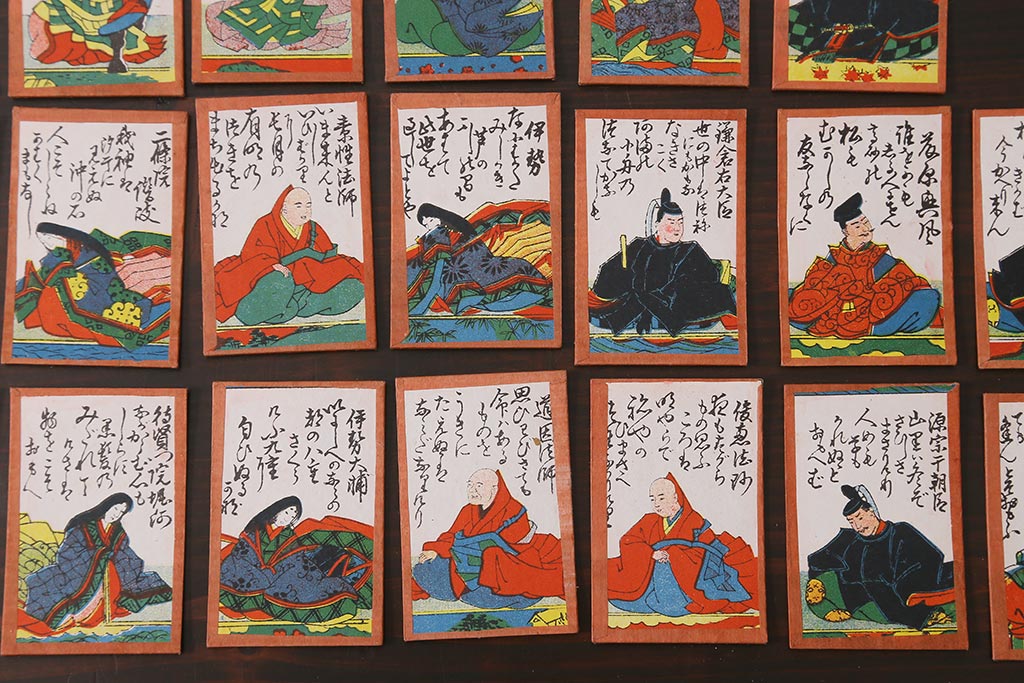 二條院
讃岐
我袖は
汐干に
見えぬ
沖の石
人こそしらね
かわくまもなし
素性法師
いま来んと
いひしばかり
に
有明の
伊勢
なにはがた
みじかき
芦の
ふしのまも
あはで
此世を
鎌倉右大臣
世の中は
なぎさ
こぐ
あまの
小舟の
つなでかなしも
藤原興風
誰をかも
しる人にせん
高砂の
松も
むかしの
友ならなくに
待賢門院堀河
ながからん
心も
しらず
黒髪の
みだれて
けさは
物をこそ
おもへ
伊勢大輔
いにしへのならの
都の八重
さくら
けふ九重
匂ひぬる
道因法師
思ひわびさても
命はある
ものを
うきに
たえぬは
なみだなりけり
俊恵法師
夜もすがら
もの思ふ
ころは
明やらで
ひまさへ
源宗于朝臣
山里は冬ぞ
さびしさ
まさりける
人めも
草も
かれぬと
おもへば